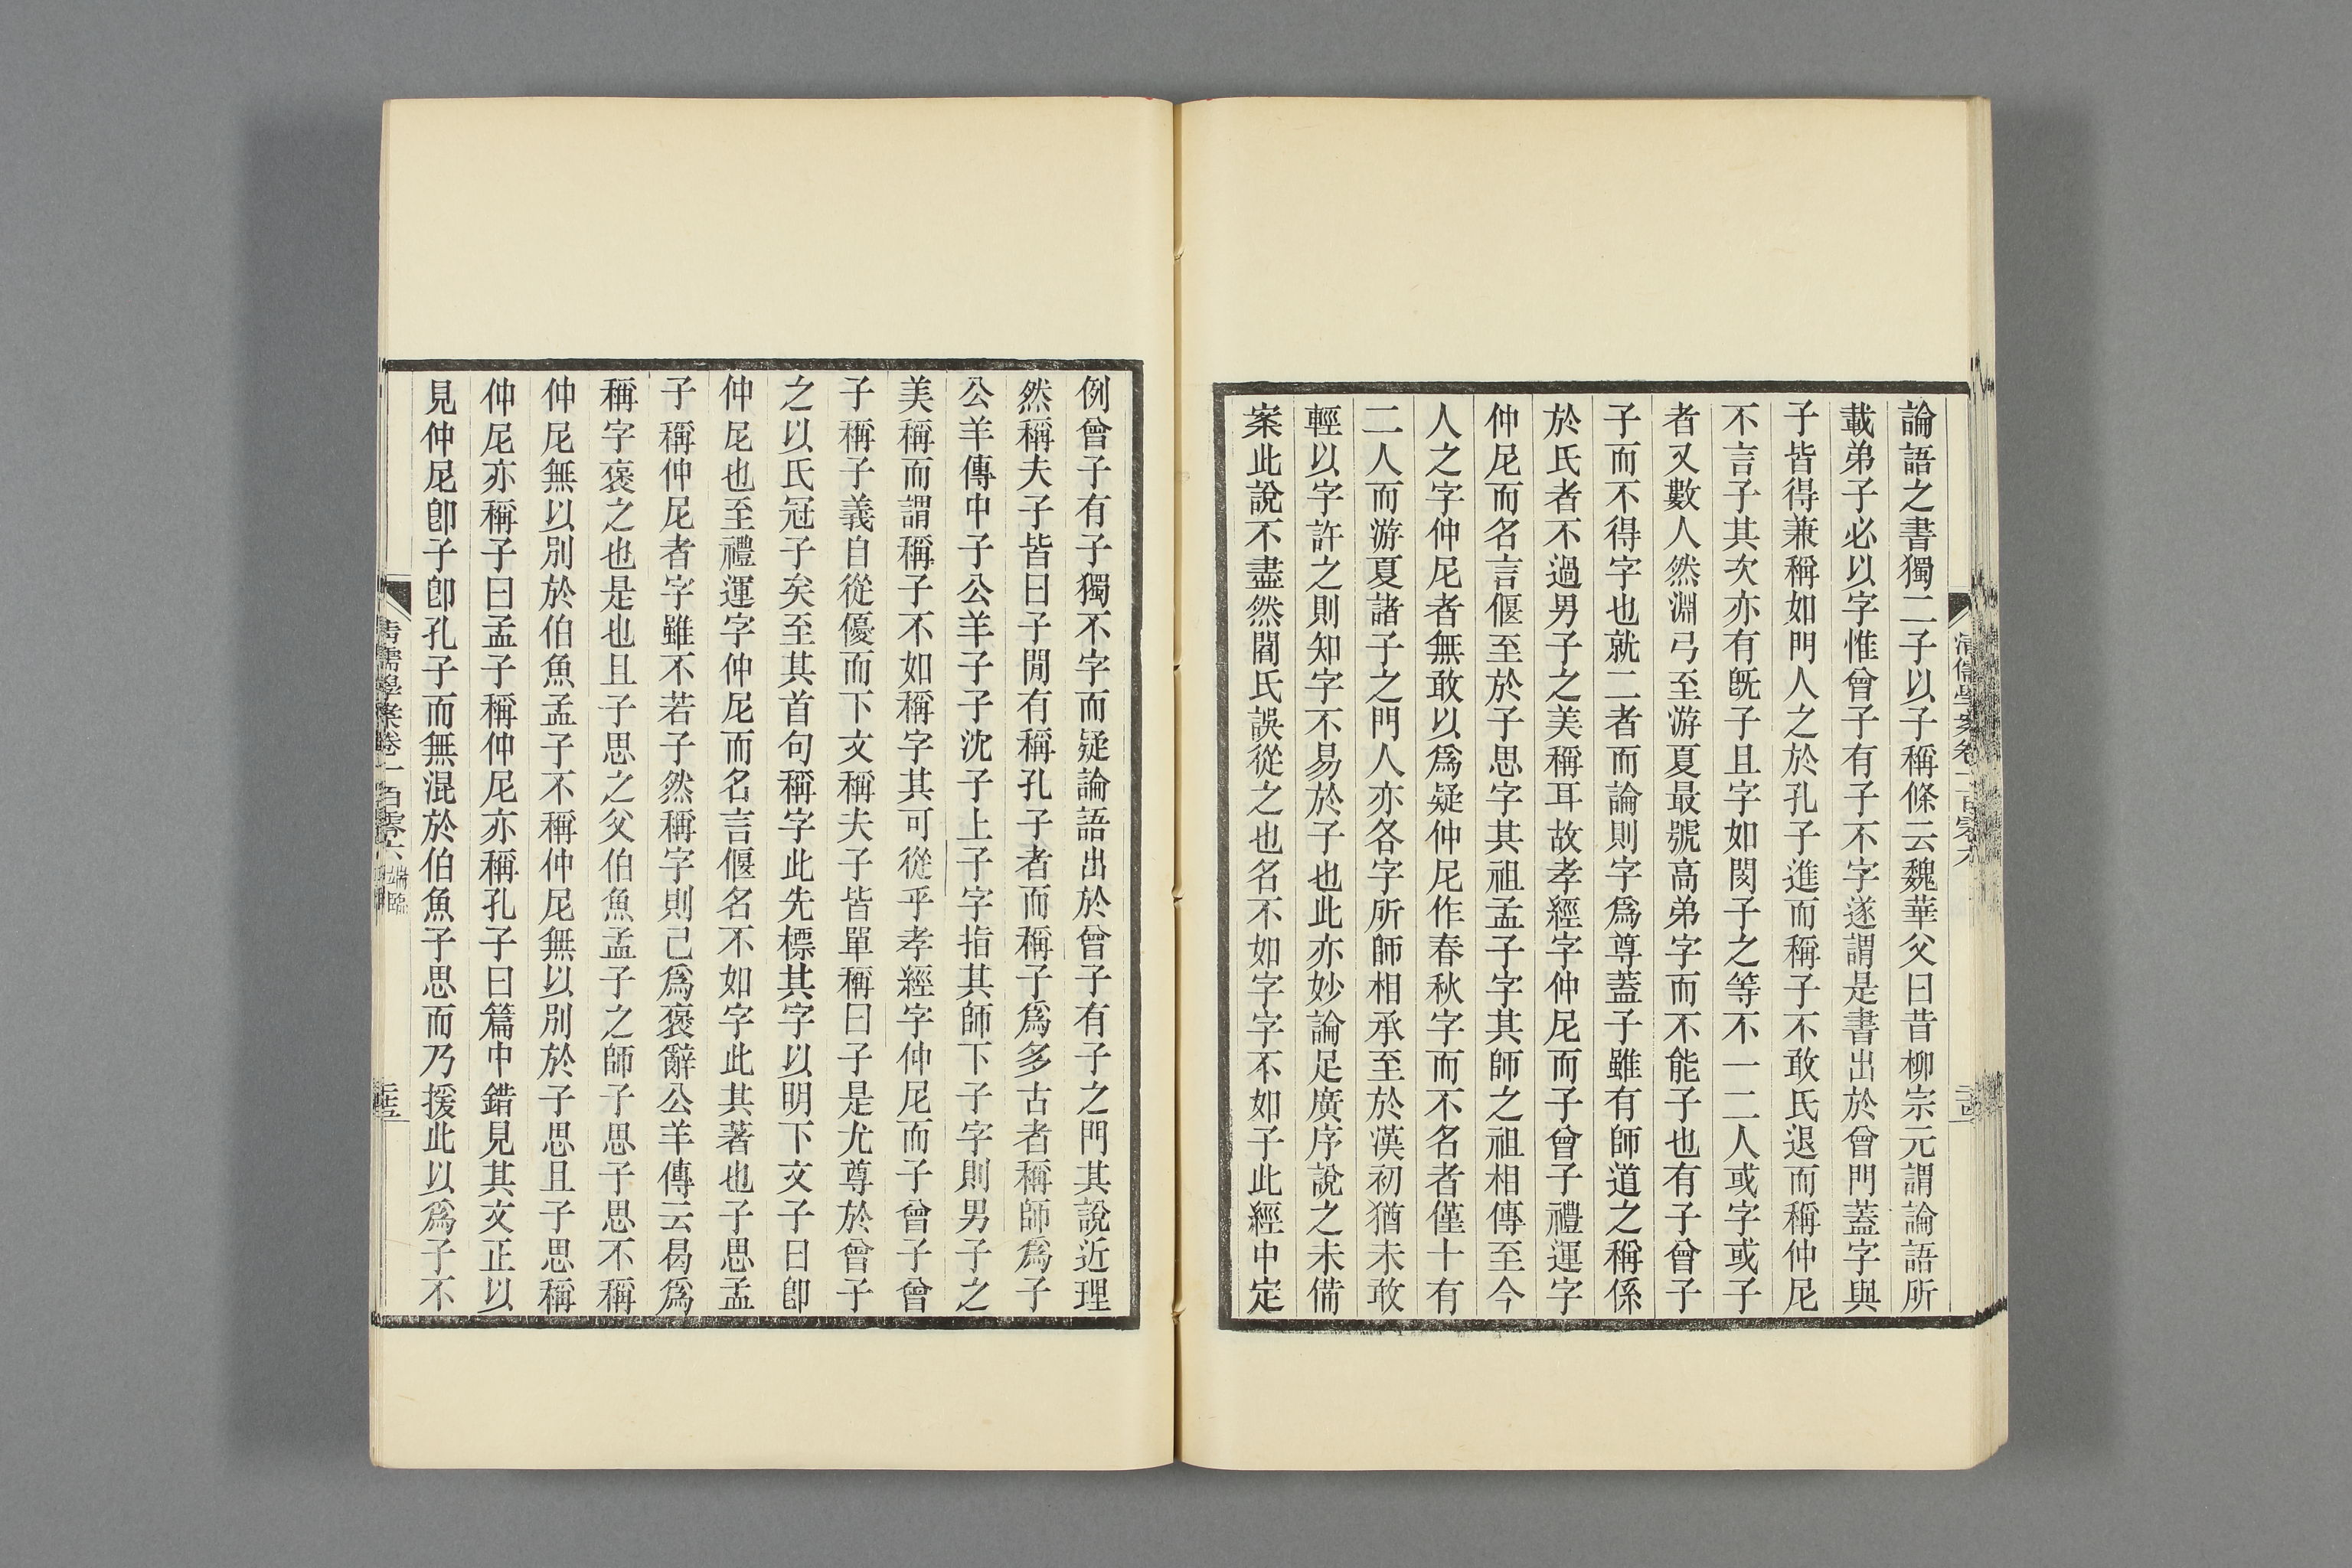 論語之書獨二子以子稱條云魏華父曰昔柳宗元謂論語所
載弟子必以字惟曾子有子不字遂謂是書出於曾門蓋字與
子皆得兼稱如門人之於孔子進而稱子不敢氏退而稱仲尼
不言子其次亦有旣子且字如閔子之等不一二人或字或子
者又數人然淵弓至游夏最號高弟字而不能子也有子曾子
子而不得字也就二者而論則字爲尊蓋子雖有師道之稱係
於氏者不過男子之美稱耳故孝經字仲尼而子曾子禮運字
仲尼而名言偃至於子思字其祖孟子字其師之祖相傳至今
人之字仲尼者無敢以爲疑仲尼作春秋字而不名者僅十有
二人而游夏諸子之門人亦各字所師相承至於漢初猶未敢
輕以字許之則知字不易於子也此亦妙論足廣序說之未備
案此說不盡然閻氏誤從之也名不如字字不如子此經中定
例曾子有子獨不字而疑論語出於曾子有子之門其說近理
然稱夫子皆曰子閒有稱孔子者而稱子爲多古者稱師爲子
公羊傳中子公羊子子沈子上子字指其師下子字則男子之
美稱而謂稱子不如稱字其可從乎孝經字仲尼而子曾子曾
子稱子義自從優而下文稱夫子皆單稱曰子是尤尊於曾子
之以氏冠子矣至其首句稱字此先標其字以明下文子曰卽
仲尼也至禮運字仲尼而名言偃名不如字此其著也子思孟
子稱仲尼者字雖不若子然稱字則已爲褒辭公羊傳云曷爲
稱字褒之也是也且子思之父伯魚孟子之師子思子思不稱
仲尼無以別於伯魚孟子不稱仲尼無以別於子思且子思稱
仲尼亦稱子曰孟子稱仲尼亦稱孔子曰篇中錯見其文正以
見仲尼卽子卽孔子而無混於伯魚子思而乃援此以爲子不
清儒學案卷一百零六